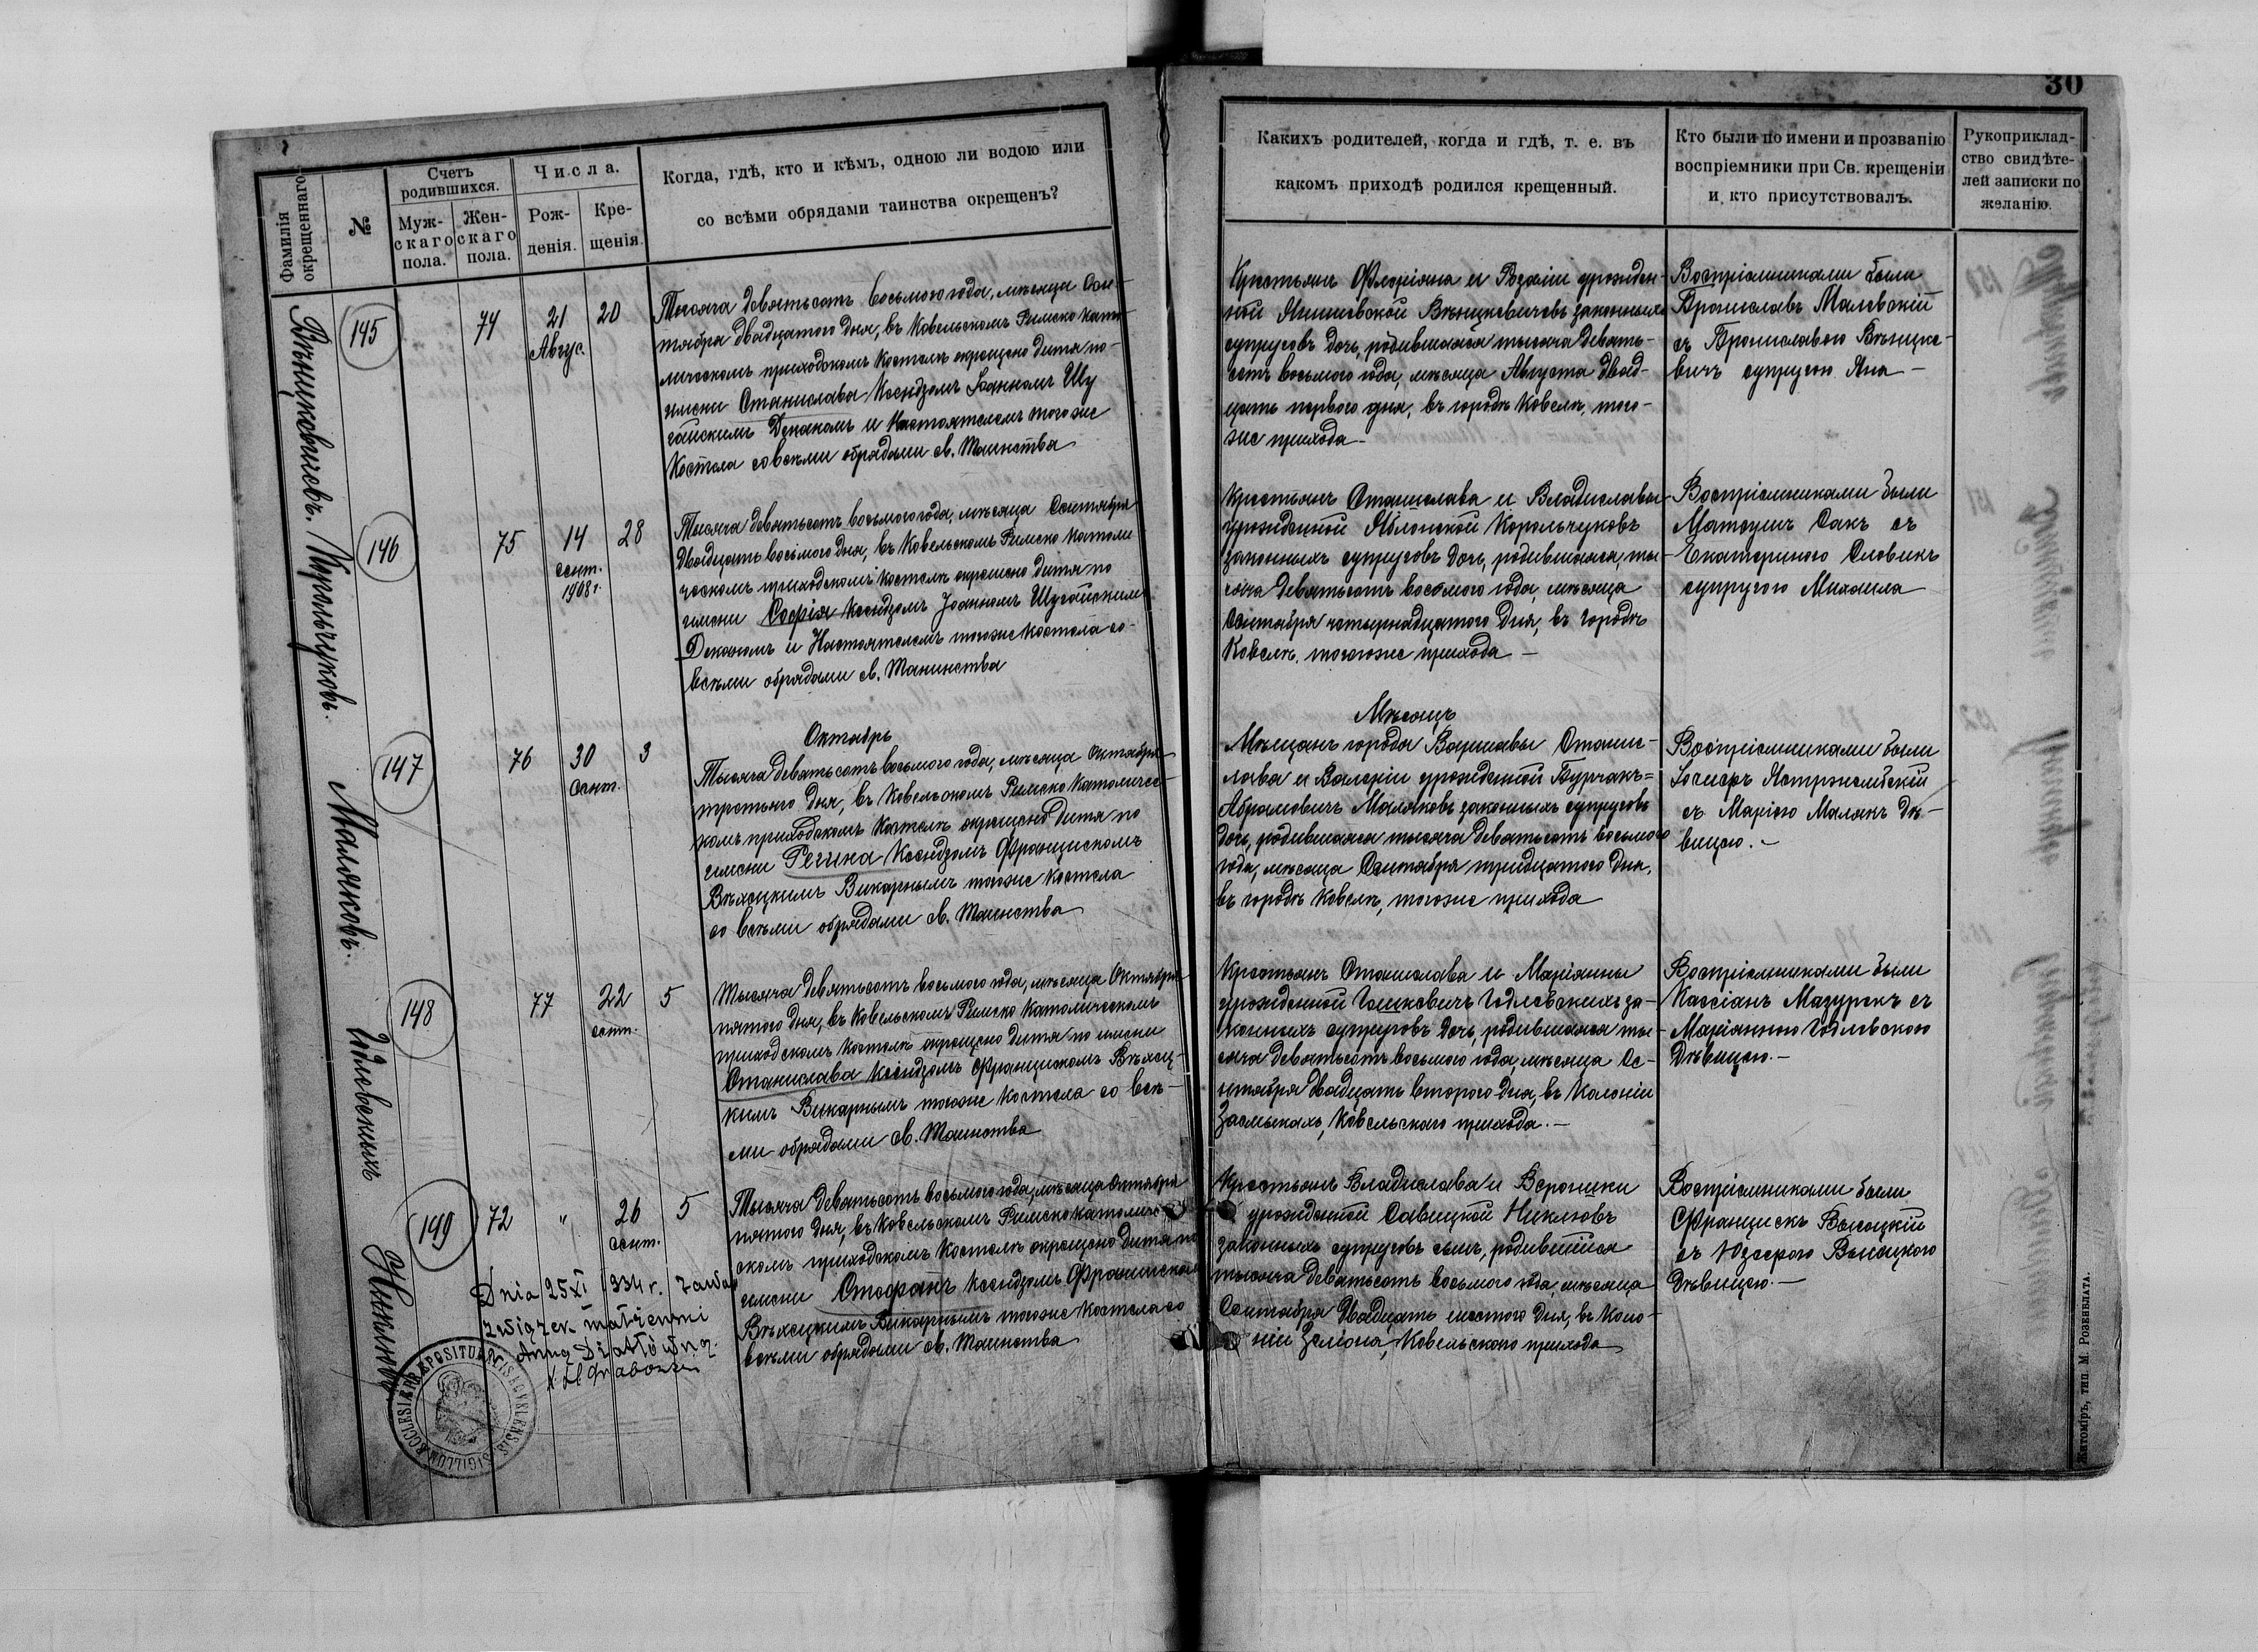 30
Фамилія окрещеннаго.
№
Счетъ родившихся.
Муж-
скаго
пола.
Жен-
скаго
пола.
Числа.
Рож-
денія.
Кре-
щенія.
Когда, гдѣ, кто и кѣмъ, одною ли водою или
со всѣми обрядами таинства окрещенъ?
Каких​ъ родителей, когда и гдѣ, т. е. въ
какомъ приходѣ родился крещенный.
Кто были по имени и прозванію
воспріемники при Св. крещеніи
и кто присутствовалъ.
Рукоприклад-
ство свидѣте-
лей записки по
желанію.
145
74
21
Авгус.
20
Тысяча девятьсотъ восьмого года, мѣсяца Сен-
тября двадцатого дня, въ Ковельскомъ Римско Като-
лическомъ приходскомъ костелѣ окрещено дитя по
имени Станислава Ксендзомъ Іоанномъ Шу
гайскимъ Деканомъ и Настоятелемъ тогоже
Костела со всѣми обрядами св. Таинства
Крестьянъ Флоріяна и Розаліи урожден-
ной Вѣнцкевичовъ законныхъ
супруговъ дочь, родившаяся тысяча девять-
сотъ восьмого года, мѣсяца Августа двад-
цать первого дня, въ городѣ Ковелѣ, того-
же прихода
Воспріемниками были
Брониславъ Малевскій
съ Брониславою Вѣнцке-
вичъ супругою Яна
146
Корольчуковъ.
75
14
сент.
1908 г.
28
Тысяча девятьсотъ восьмого года, мѣсяца Сентября
двадцать восьмого дня, въ Ковельскомъ Римско Католи
ческомъ приходскомъ костелѣ окрещено дитя по
имени Софія Ксендзомъ Іоанномъ Шугайскимъ
Деканомъ и Настоятелемъ тогоже Костела со
всѣми обрядами св. Таинства
Крестьянъ Станислава и Владиславы
урожденной Яблонской Корольчуковъ
законныхъ супруговъ дочь, родившаяся ты-
сяча девятьсотъ восьмого года, мѣсяца
Сентября четырнадцатого дня, въ городѣ
Ковелѣ, тогоже прихода
Воспріемниками были
Матеушъ Сакъ съ
Екатериною Словикъ
супругою Михаила
Октябрь
Мѣсяцъ
147
Маляковъ.
76
30
Сент.
3
Тысяча девятьсотъ восьмого года, мѣсяца Октября
третьяго дня, въ Ковельскомъ Римско Католичес-
комъ приходскомъ костелѣ окрещено дитя по
имени Регина Ксендзомъ Францискомъ
Викарнымъ тогоже костела
со всѣми обрядами св. Таинства
Мѣщанъ города Варшавы Станис-
лава и Валеріи урожденной Бурчакъ=
Абрамовичъ Маляковъ законныхъ супруговъ
дочь, родившаяся тысяча девятьсотъ восьмого
года, мѣсяца Сентября тридцатого дня,
въ городѣ Ковелѣ, тогоже прихода
Воспріемниками были
Іосифъ Ястржембскій
съ Маріею Малякъ дѣ-
вицею.
148
77
22
сент.
5
Тысяча девятьсотъ восьмого года, мѣсяца Октября
пятого дня, въ Ковельскомъ Римско Католическомъ
приходскомъ костелѣ окрещено дитя по имени
Станислава Ксендзомъ Францискомъ
кимъ Викарнымъ тогоже костела со всѣ-
ми обрядами св. Таинства
Крестьянъ Станислава и Маріанны
урожденной Годлевскихъ за-
конныхъ супруговъ дочь, родившаяся ты-
сяча девятьсотъ восьмого года, мѣсяца Се-
нтября двадцать второго дня, въ Колоніи
Засмыкахъ, Ковельскаго прихода.
Воспріемниками были
Кассіанъ Мазурекъ съ
Маріанною Годлевскою
Дѣвицею.
149
72
"
26
сент.
5
Тысяча девятьсотъ восьмого года, мѣсяца Октября
пятого дня, въ Ковельскомъ Римско католиче
скомъ приходскомъ костелѣ окрещено дитя по
имени Стефанъ Ксендзомъ Францискомъ
Викарнымъ тогоже костела со
всѣми обрядами св. Таинства
Крестьянъ Владислава и Вероники
урожденной Савицкой Никлювъ
законныхъ супруговъ сынъ, родившійся
тысяча девятьсотъ восьмого года, мѣсяца
Сентября двадцать шестого дня, въ Коло-
ніи Зелiона, Ковельского прихода
Воспріемниками были
Францискъ Высоцкій
съ Юзефою Высоцкою
Дѣвицею.
Dnia 25 XI 1934 r. zawar
związek małżeński
Anną
SIGILLUM ECCLESIÆ
Житоміръ, тип. М. Розенблата.